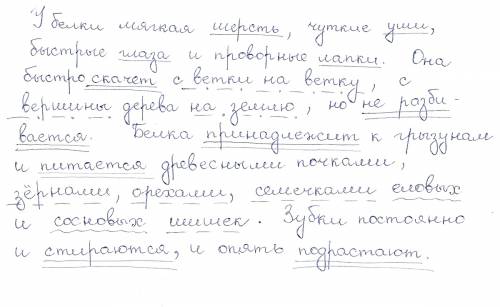 У белки мягкая шерсть, чуткие уши,
быстрые глаза и проворные лапки. Она
быстро скачет с ветки на ветку, с
вершины дерева на землю, но не разби-
вается. Белка принадлежит к грызунам
и питается древесными почками,
зёрнами, орехами, семечками еловых
и сосновых шишек. Зубки постоянно
и стираются, и опять подрастают.